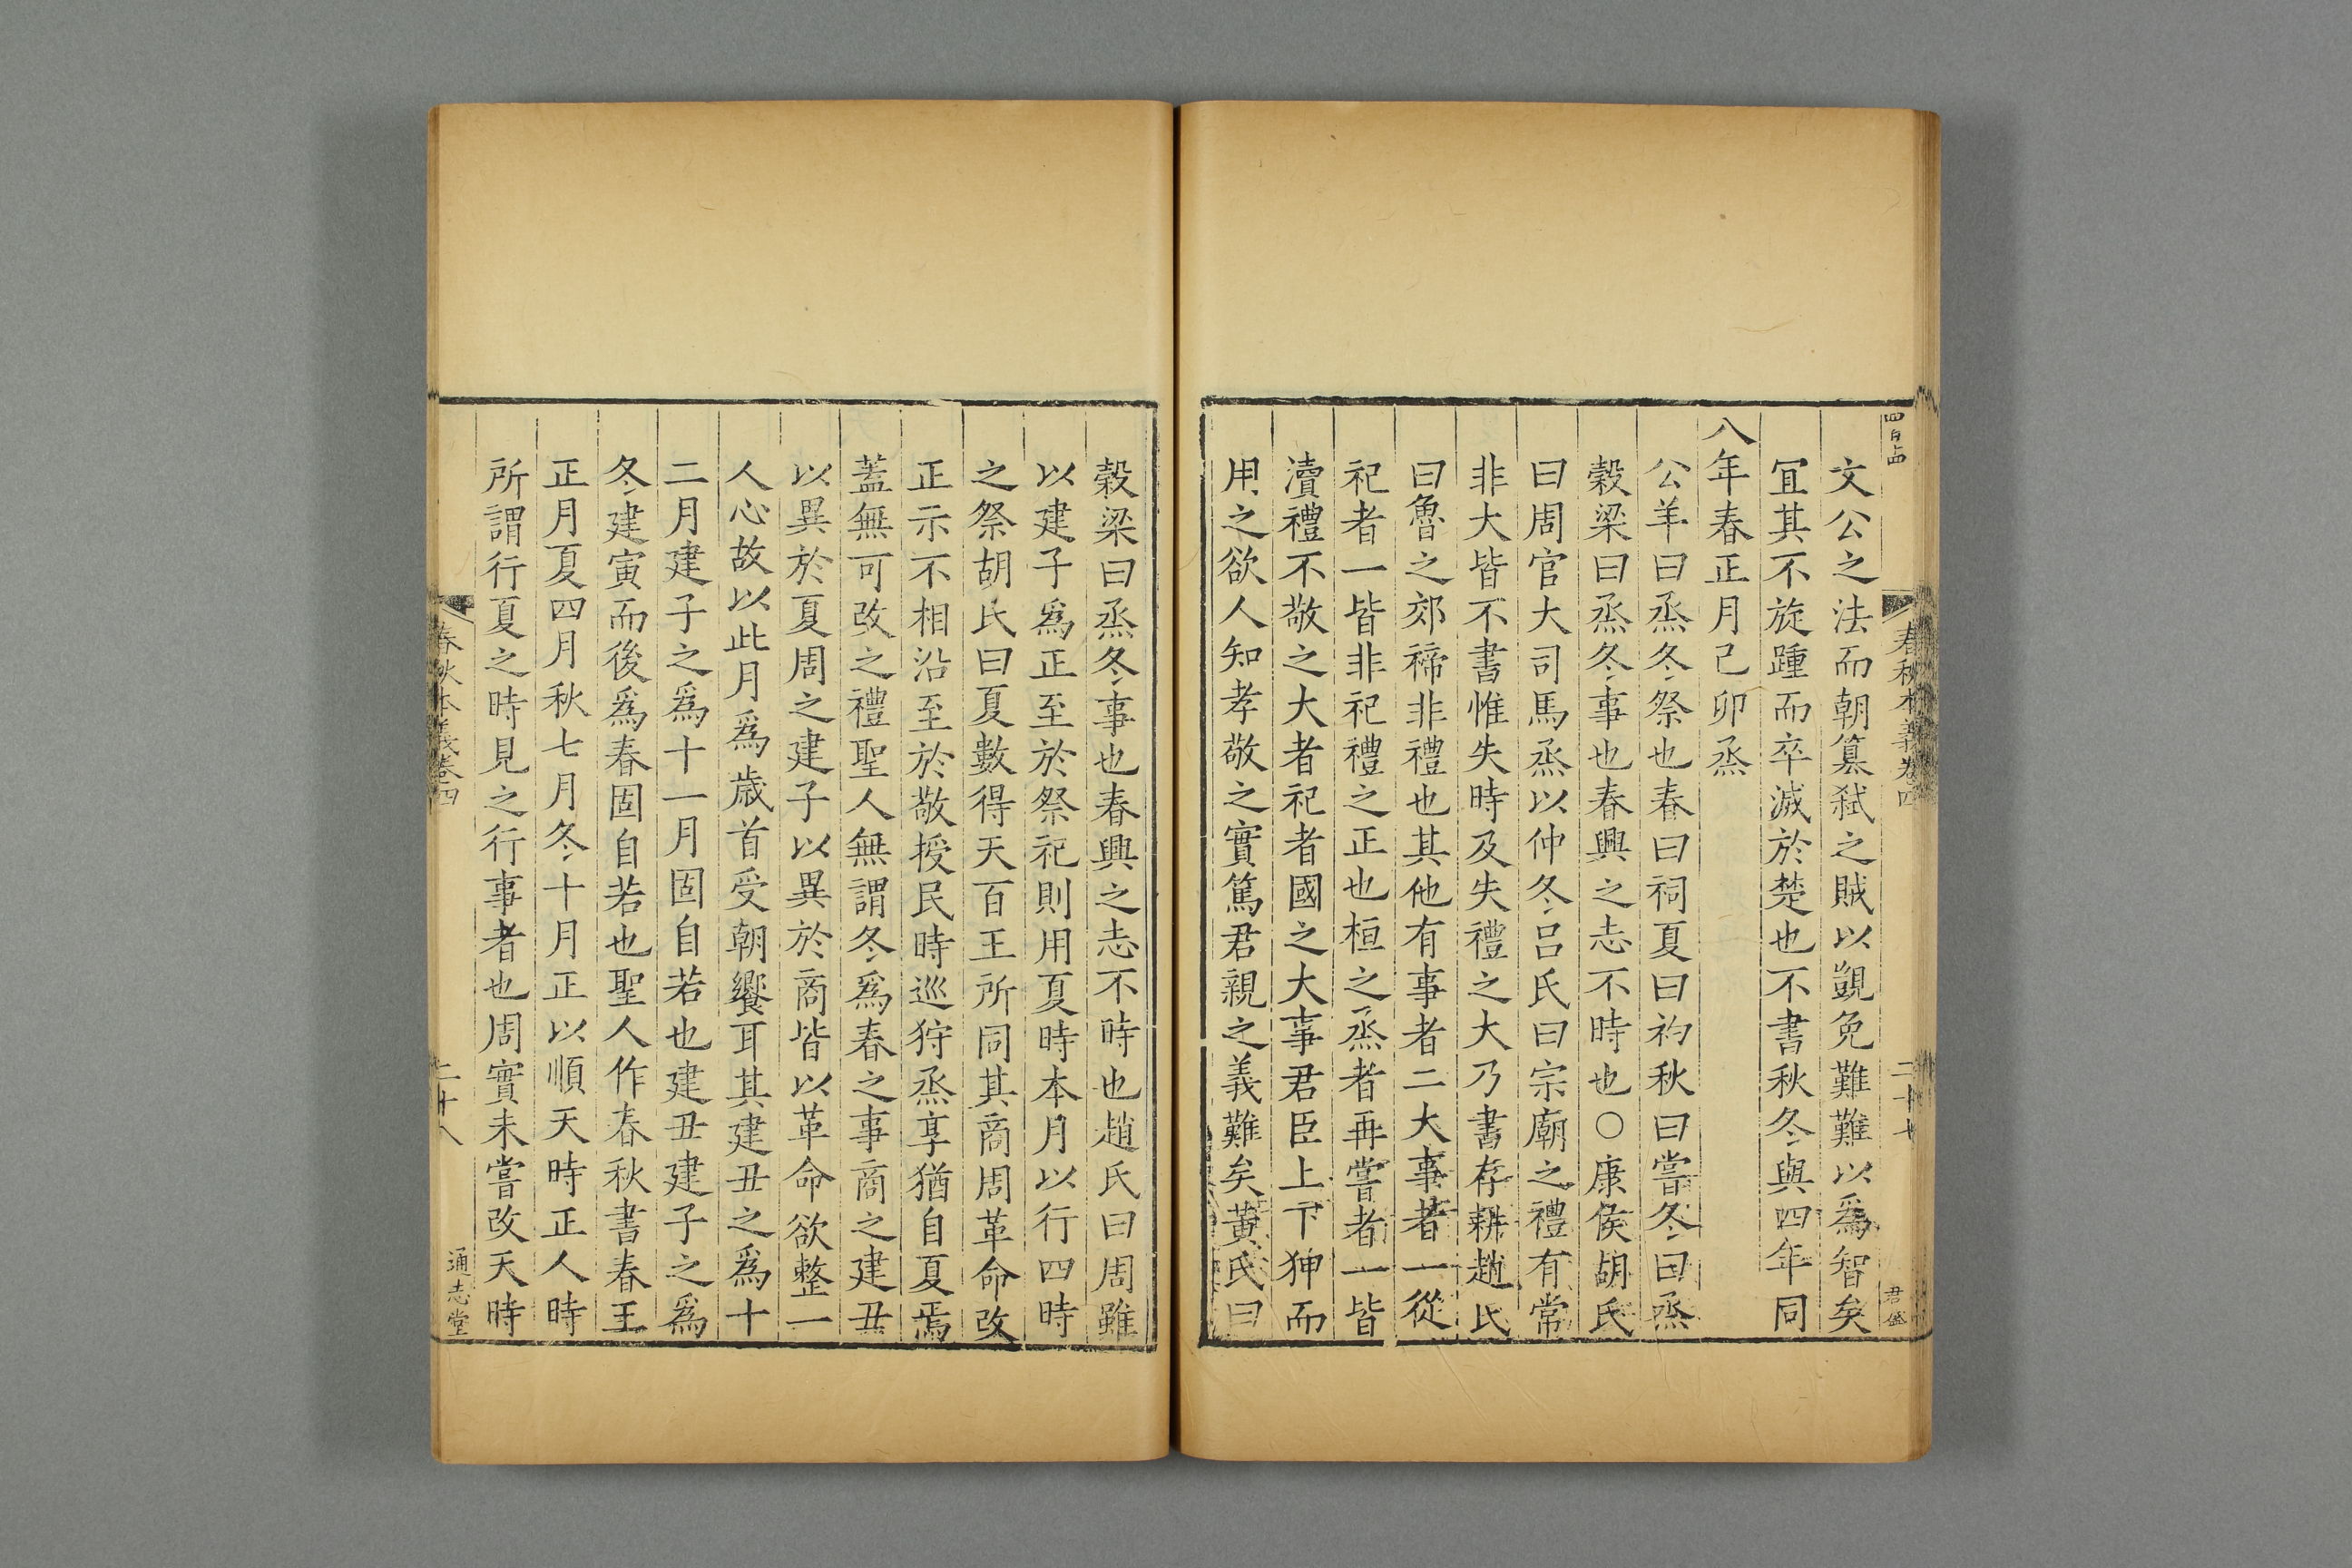 春秋本義卷四
二十七
文公之法而朝篡弑之賊以覬免難難以爲智矣
宜其不旋踵而卒滅於楚也不書秋冬與四年同
八年春正月己卯烝
公羊曰烝冬祭也春曰祠夏曰礿秋曰嘗冬曰烝
穀梁曰烝冬事也春興之志不時也○康侯胡氏
曰周官大司馬烝以仲冬呂氏曰宗廟之禮有常
非大皆不書惟失時及失禮之大乃書存耕趙氏
曰魯之郊禘非禮也其他有事者二大事者一從
祀者一皆非祀禮之正也桓之烝者再嘗者一皆
瀆禮不敬之大者祀者國之大事君臣上下狎而
用之欲人知孝敬之實篤君親之義難矣黃氏曰
穀梁曰烝冬事也春興之志不時也趙氏曰周雖
以建子爲正至於祭祀則用夏時本月以行四時
之祭胡氏曰夏數得天百王所同其商周革命改
正示不相沿至於敬授民時巡狩烝享猶自夏焉
蓋無可改之禮聖人無謂冬爲春之事商之建丑
以異於夏周之建子以異於商皆以革命欲整一
人心故以此月爲歲首受朝饗耳其建丑之爲十
二月建子之爲十一月固自若也建丑建子之爲
冬建寅而後爲春固自若也聖人作春秋書春王
正月夏四月秋七月冬十月正以順天時正人時
所謂行夏之時見之行事者也周實未嘗改天時
春秋本義卷四
二十八
通志堂